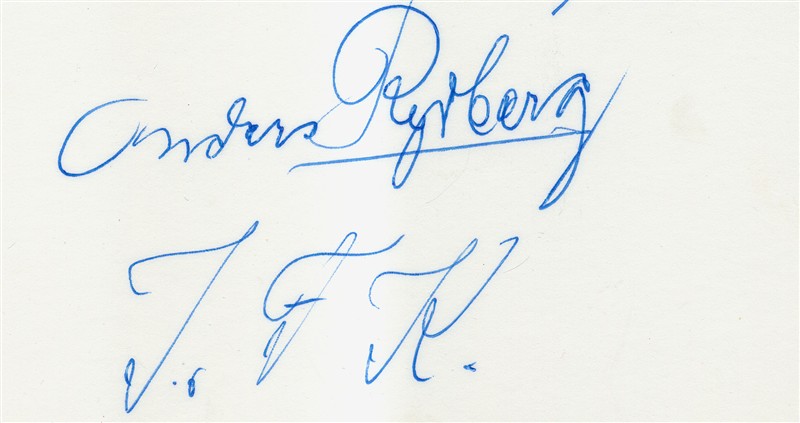 Anders Rydberg
J. F K.